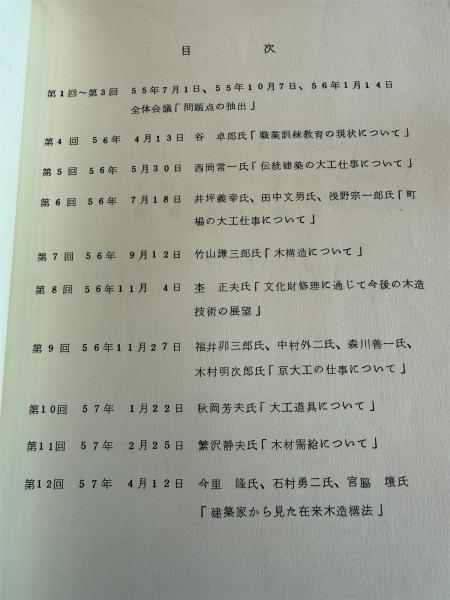 目　　次
第1回～第3回　55年7月1日、55年10月7日、56年1月14日
全体会議「問題点の抽出」
第4回　56年　4月13日　谷　卓郎氏「職業訓練教育の現状について」
第5回　56年　5月30日　西岡常一氏「伝統建築の大工仕事について」
第6回　56年　7月18日　井坪義幸氏、田中文男氏、浅野宗一郎氏「町
場の大工仕事について」
第7回　56年　9月12日　竹山謙三郎氏「木構造について」
第8回　56年11月　4日　杢　正夫氏「文化財修理に通じて今後の木造
技術の展望」
第9回　56年11月27日　福井卯三郎氏、中村外二氏、森川善一氏、
木村明次郎氏「京大工の仕事について」
第10回　57年　1月22日　秋岡芳夫氏「大工道具について」
第11回　57年　2月25日　繁沢静夫氏「木材需給について」
第12回　57年　4月12日　今里　隆氏、石村勇二氏、宮脇　壇氏
「建築家から見た在来木造構法」